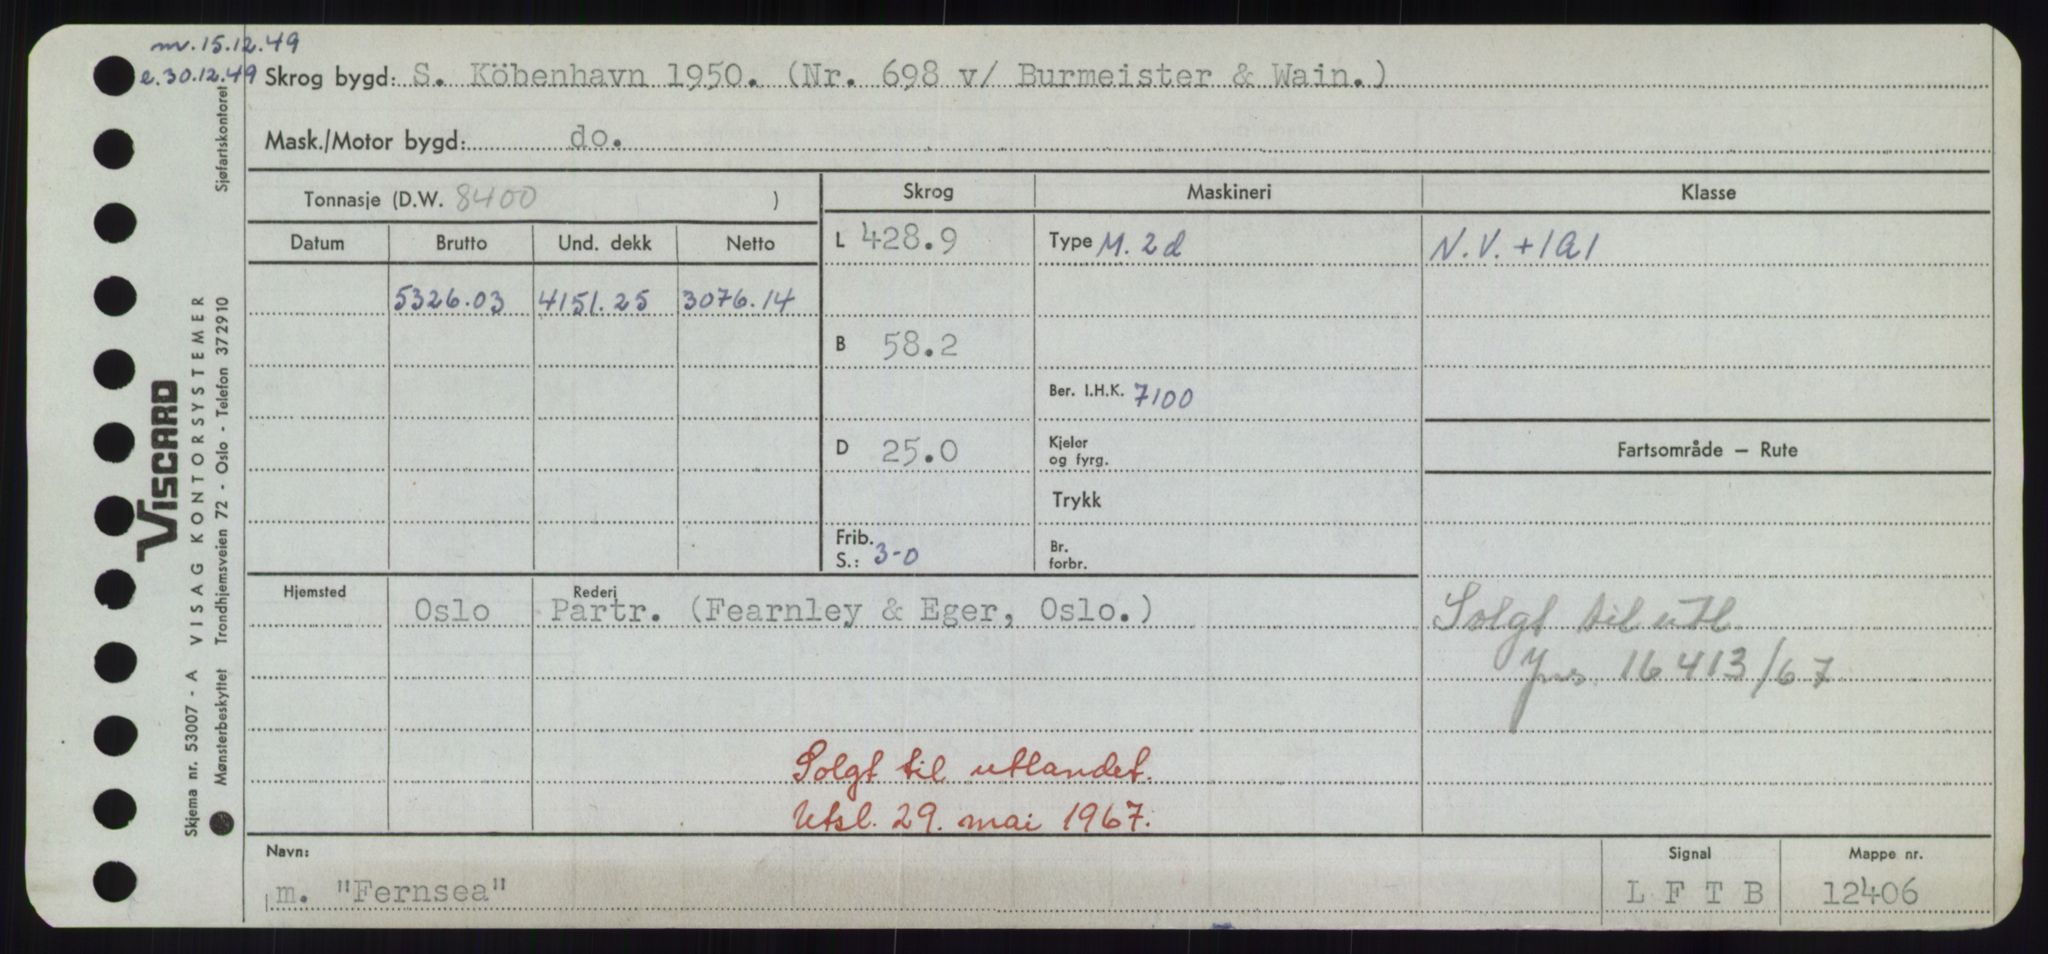 m. 15.12.49
e. 30.12.49
Skrog bygd: S. Köbenhavn 1950. (Nr. 698 v/ Burmeister & Wain.)
Mask./Motor bygd: do.
Tonnasje (D.W. 8400 )
Skrog
Maskineri
Klasse
Datum Brutto Und. dekk Netto
L 428.9
Type M. 2d
N.V. +1A1
5326.03 4151.25 3076.14
B 58.2
Ber. I.H.K. 7100
D 25.0
Kjeler
og fyrg.
Fartsområde — Rute
Trykk
Frib.
S.: 3-0
Br.
forbr.
Hjemsted
Rederi
Oslo Partr. (Fearnley & Eger, Oslo.)
Solgt til utl.
16413/67
Solgt til utlandet.
Utsl. 29. mai 1967.
Navn:
Signal
Mappe nr.
m. "Fernsea"
L F T B
12406
VISCARD
Skjema nr. 53007 - A VISAG KONTORSYSTEMER
Mønsterbeskyttet Trondhjemsveien 72 - Oslo - Telefon 372910
Sjøfartskontoret